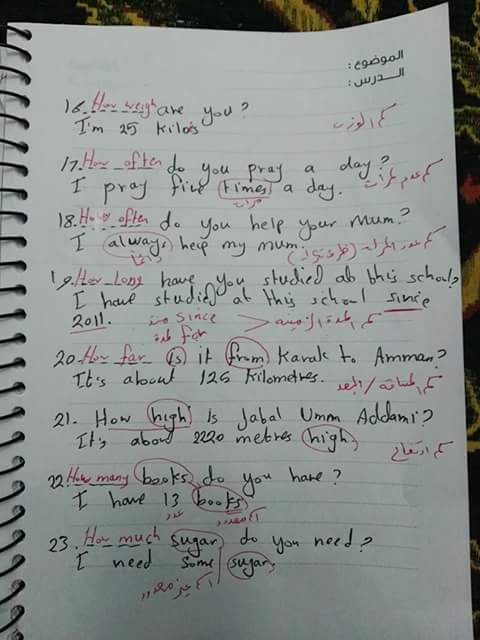 الموضوع:
الدرس:
16. How weigh are you?
I'm 25 kilos
كم الوزن
17. How often do you pray a day?
I pray five times a day.
كم عدد مرات
مرات
18. How often do you help your Mum?
I always help my mum.
دائماً
كم عدد المرات (ظرف تكرار)
19. How long have you studied at this school?
I have studied at this school since
2011.
منذ since
لمدة for
كم المدة الزمنية
20. How far is it from Karak to Amman?
It's about 125 kilometres.
كم المسافة / البعد
21. How high is Jabal Umm Addami?
It's about 2220 metres high
كم ارتفاع
22. How many books do you have?
I have 13 books
عدد
اسم معدود
23. How much sugar do you need?
I need some sugar
اسم غير معدود